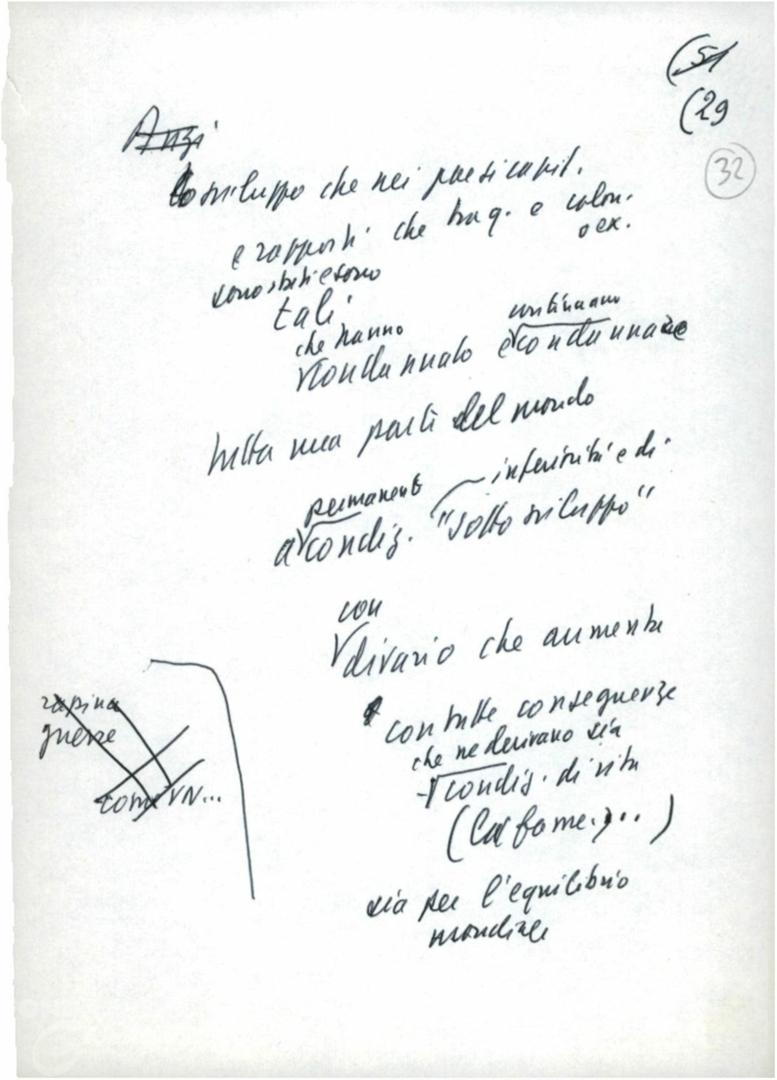 (51
(29
32
Anzi
Lo sviluppo che nei paesi capit.
e rapporti che tra q. e colon.
o ex.
sono stati e sono
tali
che hanno continuano
condannato e condannare
tutta una parte del mondo
permanente inferiorità e di
a condiz. "sotto sviluppo"
con
divario che aumenta
con tutte conseguenze
che ne derivano sia
condiz. di vita
(la fame...)
sia per l'equilibrio
mondiale
rapina
guerre
come VN...